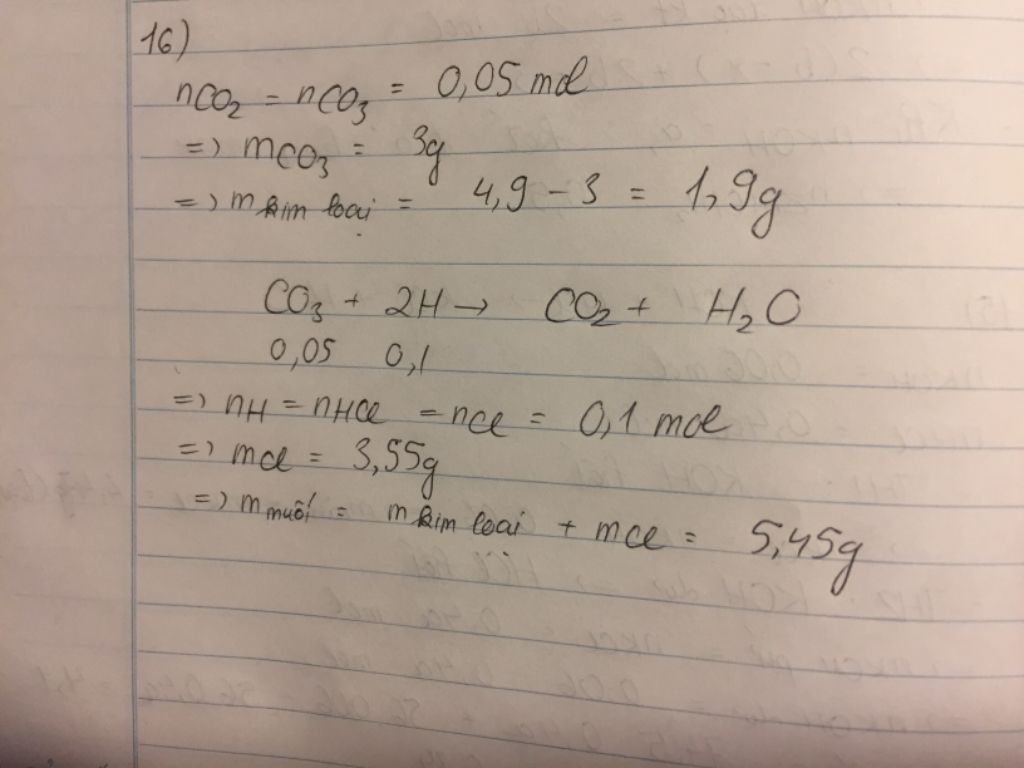 16)
nCO2 = nCO3 = 0,05 mol
=> mCO3 = 3g
=> m kim loại = 4,9 - 3 = 1,9g
CO3 + 2H → CO2 + H2O
0,05 0,1
=> nH = nHCl = nCl = 0,1 mol
=> mCl = 3,55g
=> m muối = m kim loại + mCl = 5,45g